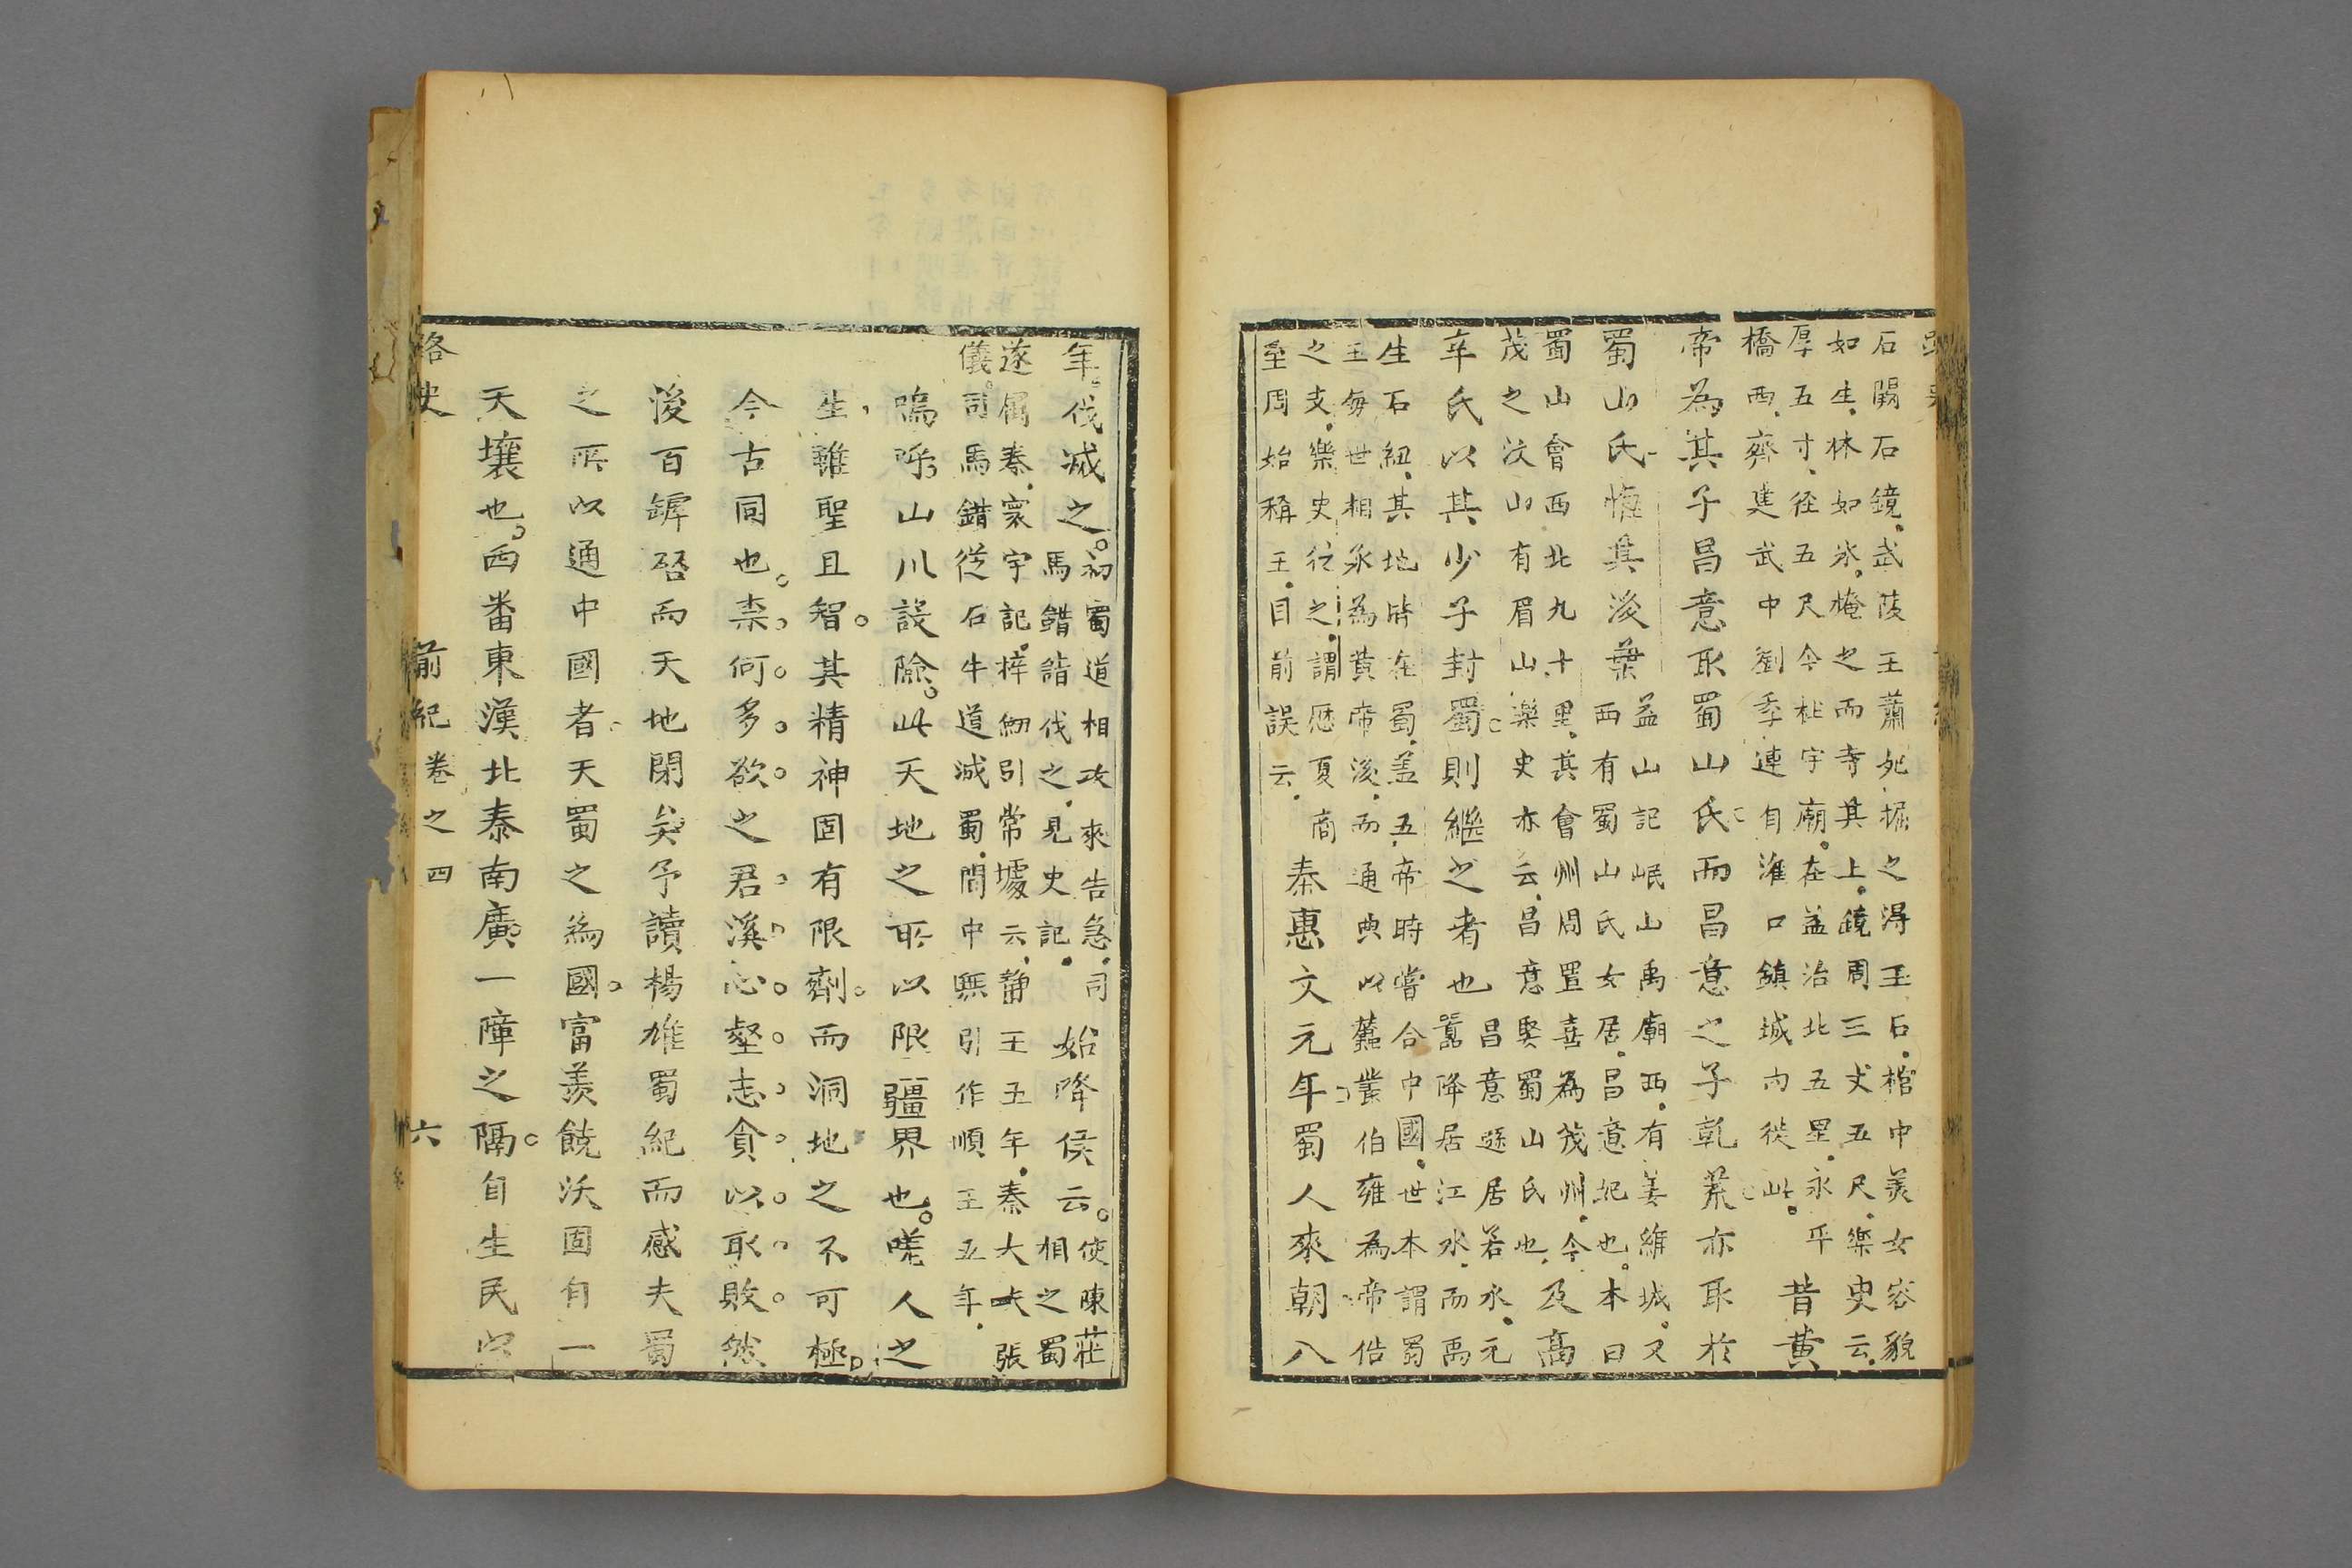 石闕石鏡武陵王蕭死掘之得玉石棺中美女容貌
如生林如氷掩之而寺其上鏡周三丈五尺樂史云
厚五寸徑五尺今杜宇廟在益治北五星永平
橋西齊建武中劉季連自淮口鎮城内徙此
昔黄
帝為其子昌意取蜀山氏而昌意之子乾荒亦取於
蜀山氏惟其後葉
益山記岷山禹廟西有姜維城又
西有蜀山氏女居昌意妃也本曰
蜀山會西北九十里其會州周置喜為茂州今
茂之汶山有眉山樂史亦云昌意娶蜀山氏也
及高
辛氏以其少子封蜀則繼之者也
昌意遜居若水元
囂降居江水而禹
生石紐其地皆在蜀蓋五帝時嘗合中國世本謂蜀
王每世相承為黄帝後而通典以蠶叢伯雍為帝俈
之支樂史從之謂歷夏商
至周始稱王目前誤云
秦惠文元年蜀人來朝八
年伐滅之
初蜀道相攻來告急司
馬錯請伐之見史記
始降侯云
使陳莊
相之蜀
遂屬秦寰宇記梓細引常璩云静王五年秦大夫張
儀司馬錯從石牛道滅蜀間中無引作順王五年
嗚呼山川設險此天地之所以限疆界也嗟人之
生雖聖且智其精神固有限劑而洞地之不可極
今古同也柰何多欲之君溪心壑志貪以取敗然
後百罅啓而天地閉矣予讀楊雄蜀紀而感夫蜀
之所以通中國者夫蜀之為國富羨饒沃固自一
天壤也西番東漢北秦南廣一障之隔自生民以
路史
前紀卷之四
六